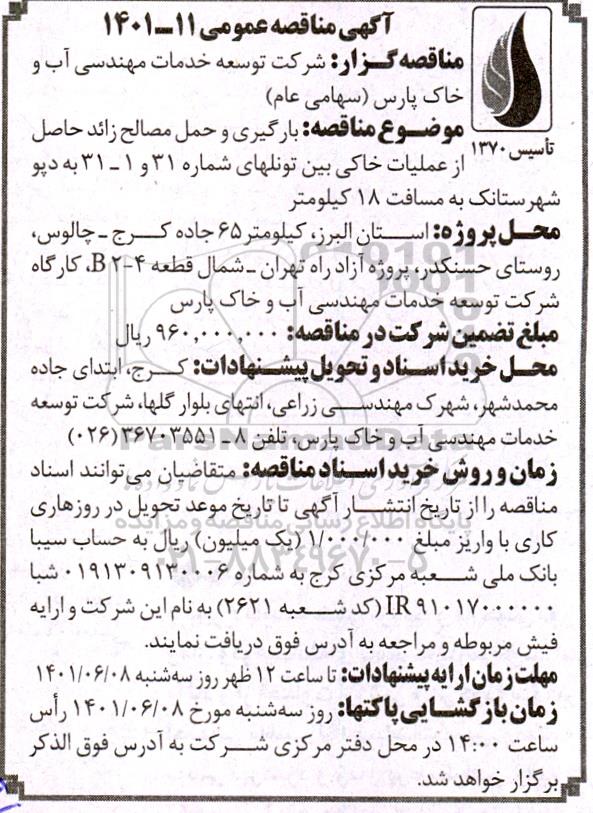 آگهی مناقصه عمومی ۱۱ـ۱۴۰۱
مناقصه‌گزار: شرکت توسعه خدمات مهندسی آب و
خاک پارس (سهامی عام)
تأسیس ۱۳۷۰
موضوع مناقصه: بارگیری و حمل مصالح زائد حاصل
از عملیات خاکی بین تونلهای شماره ۳۱ و ۱ ـ ۳۱ به دپو
شهرستانک به مسافت ۱۸ کیلومتر
محل پروژه: استان البرز، کیلومتر ۶۵ جاده کرج ـ چالوس،
روستای حسنکدر، پروژه آزاد راه تهران ـ شمال قطعه B۲-۴، کارگاه
شرکت توسعه خدمات مهندسی آب و خاک پارس
مبلغ تضمین شرکت در مناقصه: ۹۶۰,۰۰۰,۰۰۰ ریال
محل خرید اسناد و تحویل پیشنهادات: کرج، ابتدای جاده
محمدشهر، شهرک مهندسی زراعی، انتهای بلوار گلها، شرکت توسعه
خدمات مهندسی آب و خاک پارس، تلفن ۸ ـ ۳۶۷۰۳۵۵۱ (۰۲۶)
زمان و روش خرید اسناد مناقصه: متقاضیان می‌توانند اسناد
مناقصه را از تاریخ انتشار آگهی تا تاریخ موعد تحویل در روزهاری
کاری با واریز مبلغ ۱/۰۰۰/۰۰۰ (یک میلیون) ریال به حساب سیبا
بانک ملی شعبه مرکزی کرج به شماره ۰۱۹۱۳۰۹۱۳۰۰۰۶ شبا
IR ۹۱۰۱۷۰۰۰۰۰۰۰ (کد شعبه ۲۶۲۱) به نام این شرکت و ارایه
فیش مربوطه و مراجعه به آدرس فوق دریافت نمایند.
مهلت زمان ارایه پیشنهادات: تا ساعت ۱۲ ظهر روز سه‌شنبه ۱۴۰۱/۰۶/۰۸
زمان بازگشایی پاکتها: روز سه‌شنبه مورخ ۱۴۰۱/۰۶/۰۸ رأس
ساعت ۱۴:۰۰ در محل دفتر مرکزی شرکت به آدرس فوق الذکر
برگزار خواهد شد.
ParsNamadData
پایگاه اطلاع رسانی مناقصه و مزایده
۰۲۱-۸۸۳۴۹۶۷۰-۵